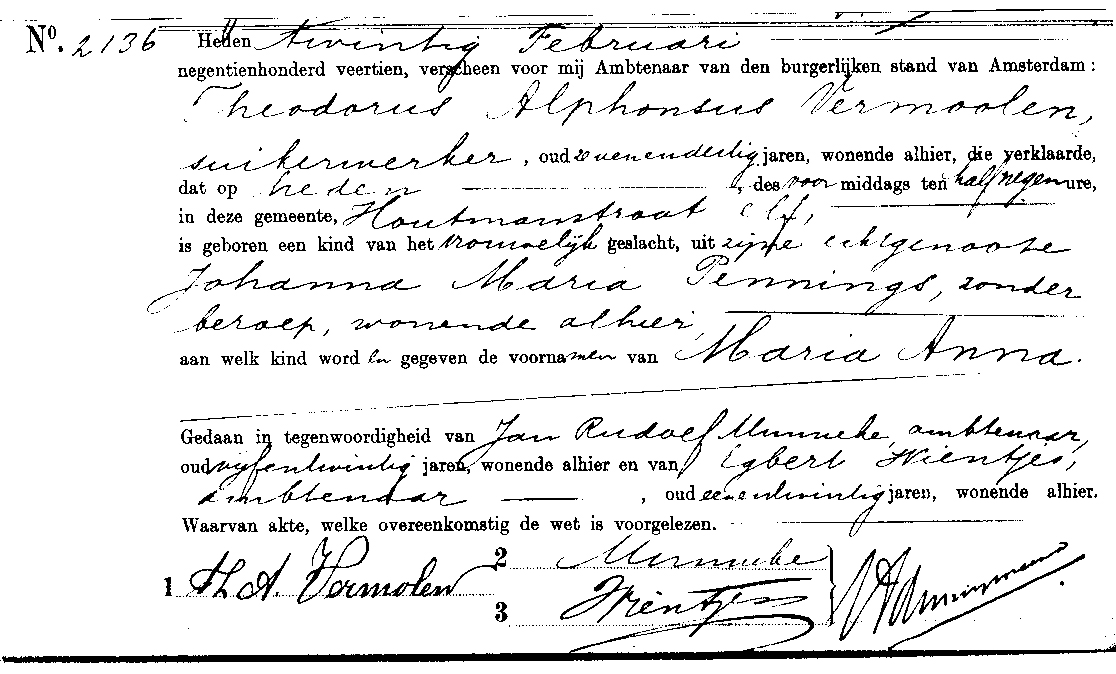 Nº. 2136 Heden twintig Februari
negentienhonderd veertien, verscheen voor mij Ambtenaar van den burgerlijken stand van Amsterdam :
Theodorus Alphonsus Vermoolen,
suikerwerker, oud zevenendertig jaren, wonende alhier, die verklaarde,
dat op heden, des voor middags ten half negen ure,
in deze gemeente, Houtmanstraat elf,
is geboren een kind van het vrouwelijk geslacht, uit zijne echtgenoote
Johanna Maria Pennings, zonder
beroep, wonende alhier,
aan welk kind word en gegeven de voornamen van Maria Anna.
Gedaan in tegenwoordigheid van Jan Rudolf Munneke, ambtenaar,
oud vijfentwintig jaren, wonende alhier en van Egbert Wientjes,
ambtenaar, oud eenentwintig jaren, wonende alhier.
Waarvan akte, welke overeenkomstig de wet is voorgelezen.
1 Th. A. Vermolen 2 Munneke
3 Wientjes